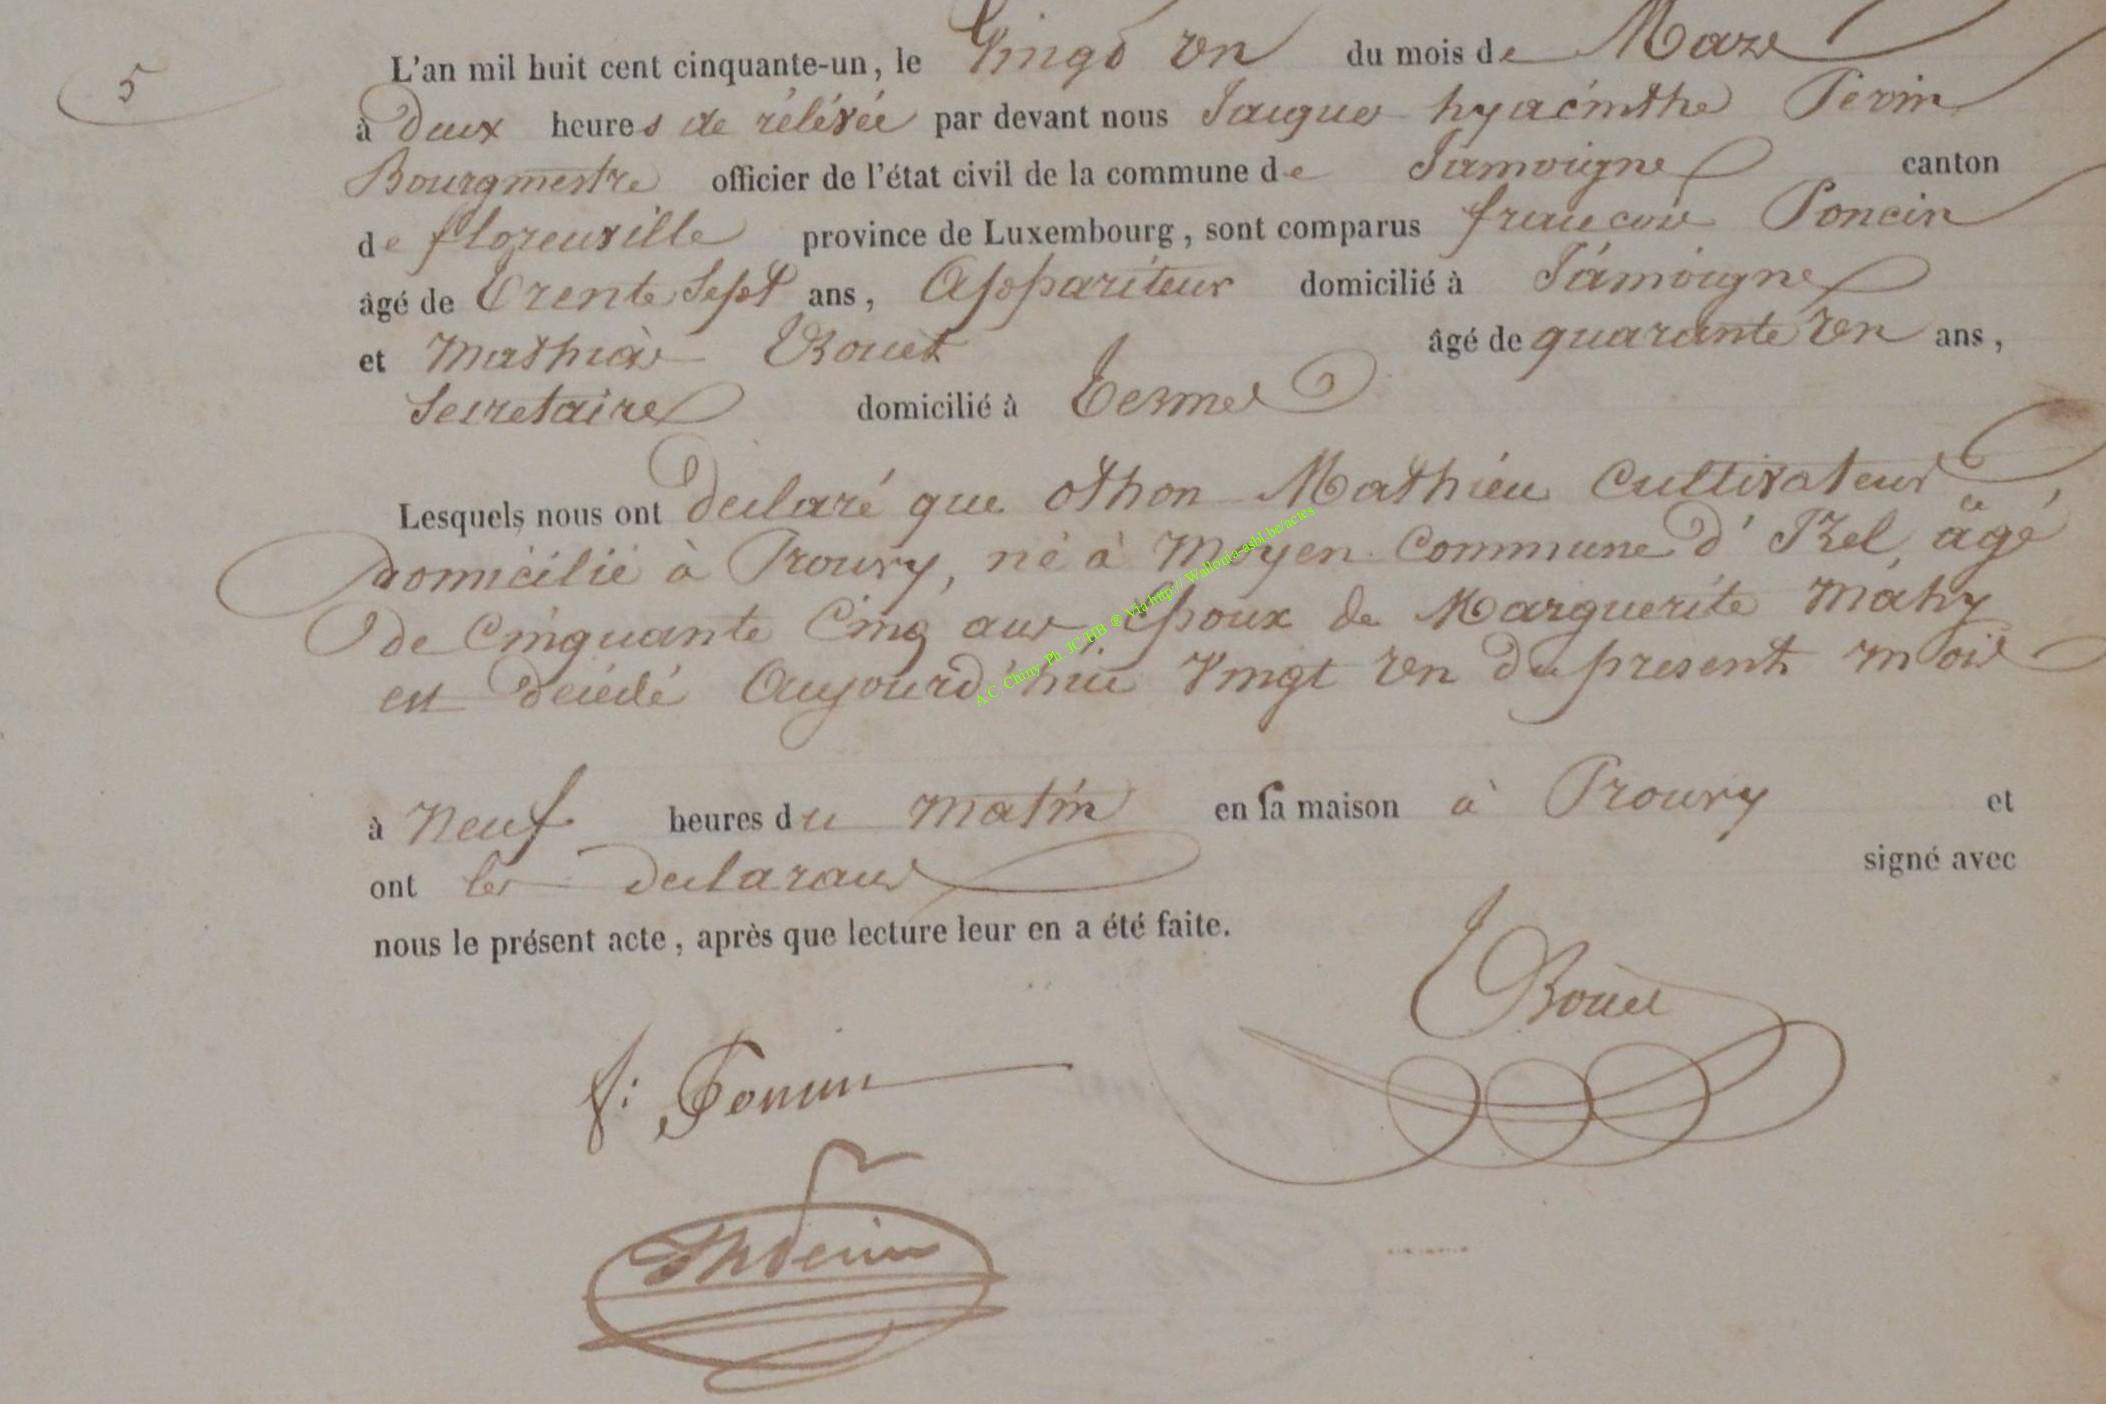 5
L'an mil huit cent cinquante-un, le Vingt un du mois de Mars
à deux heures de rélévée par devant nous Jacques hyacinthe Perin
Bourgmestre officier de l'état civil de la commune de Jamoigne canton
de florenville province de Luxembourg, sont comparus francois Poncin
âgé de Trente Sept ans, Appariteur domicilié à Jamoigne
et Mathias Bouet âgé de quarante un ans,
Secretaire domicilié à Termes
Lesquels nous ont declaré que othon Mathieu Cultivateur
domicilié à Prouvy, né à Moyen Commune d'Izel, âgé
de Cinquante Cinq ans Epoux de Marguerite Mahy
est decédé Aujourd'hui Vingt un du present mois
à Neuf heures du matin en sa maison à Prouvy et
ont les declarans signé avec
nous le présent acte, après que lecture leur en a été faite.
Bouet
f: Poncin
JhPerin
A.C. Chiny Ph. JC HB ® Via http:// Wallonia-asbl.be/actes